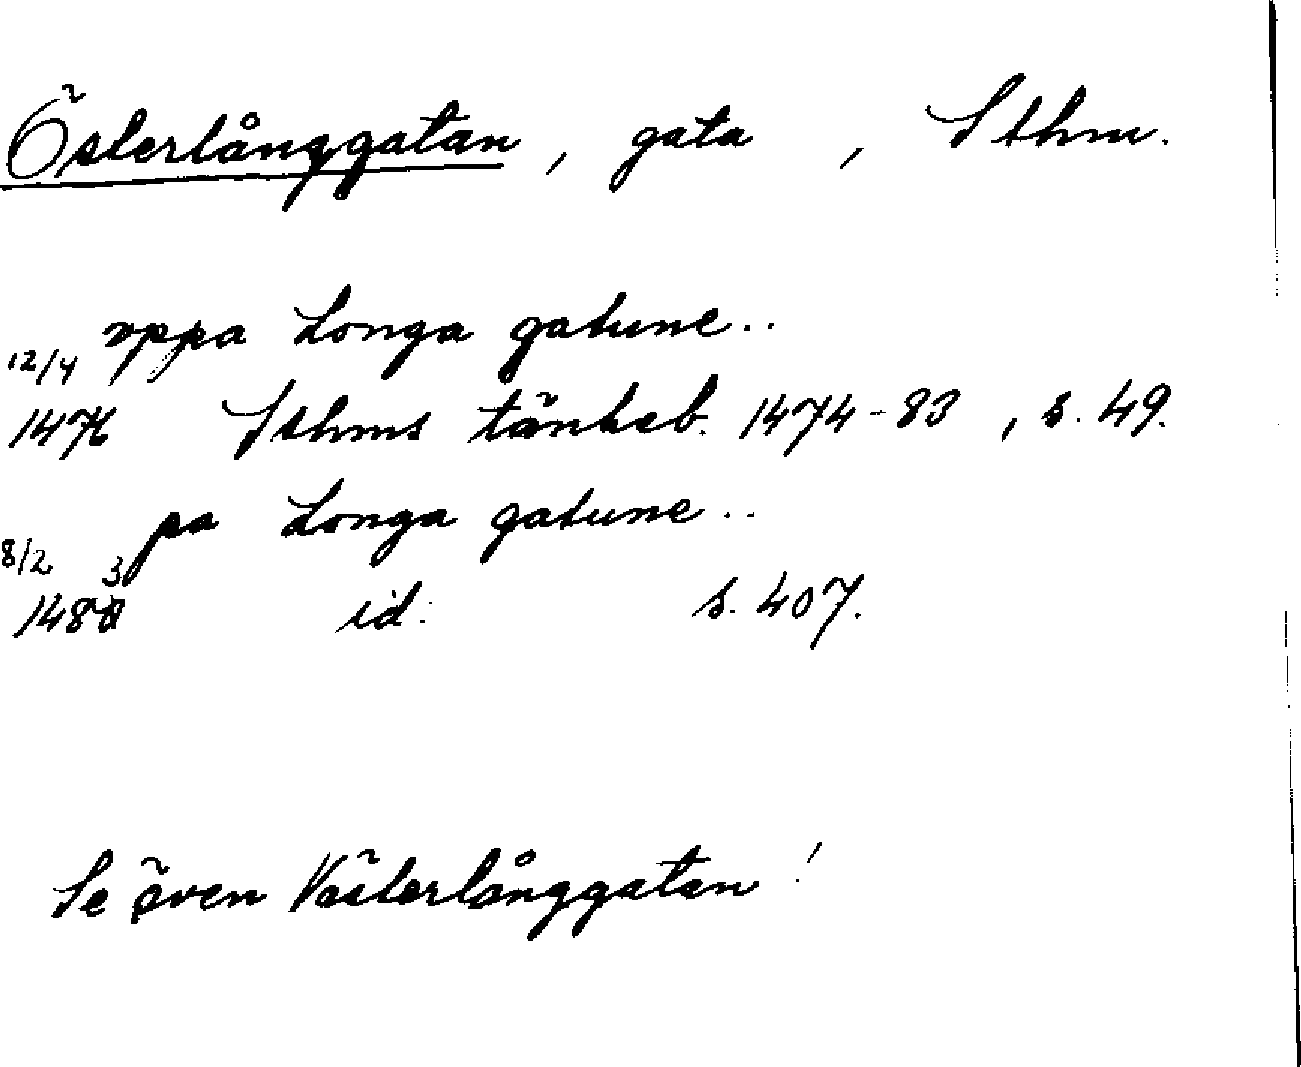 Österlånggatan, gata, Sthm.
vppa Longa gatune..
12/4
1476 Sthms tänkeb. 1474-83, s. 49.
pa Longa gatune..
8/2
1483 id. s. 407.
Se även Västerlånggatan!